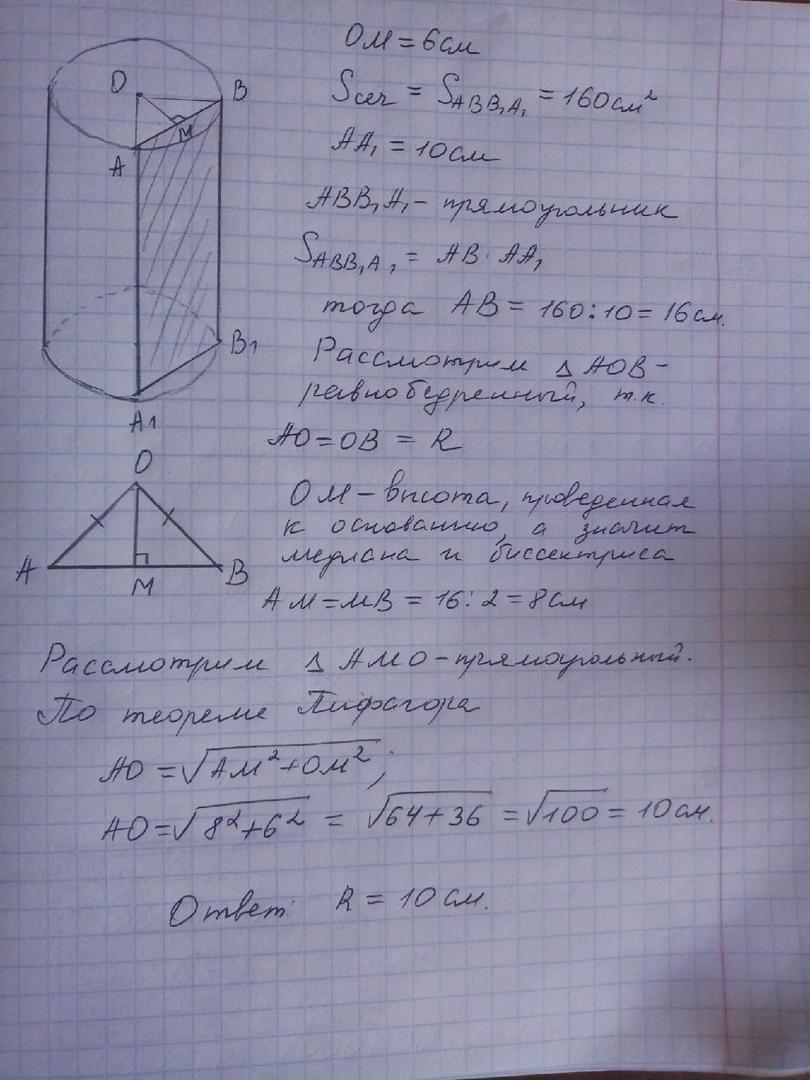 OM = 6см
Sсеч = S_ABB₁A₁ = 160см²
AA₁ = 10см
ABB₁A₁ - прямоугольник
S_ABB₁A₁ = AB · AA₁
тогда AB = 160 : 10 = 16см.
Рассмотрим Δ AOB -
равнобедренный, т.к.
AO = OB = R
OM - высота, проведенная
к основанию, а значит
медиана и биссектриса
AM = MB = 16 : 2 = 8см
O
B
M
A
B1
A1
O
A
M
B
Рассмотрим Δ AMO - прямоугольный.
По теореме Пифагора
AO = √AM² + OM²;
AO = √8² + 6² = √64 + 36 = √100 = 10см.
Ответ: R = 10см.